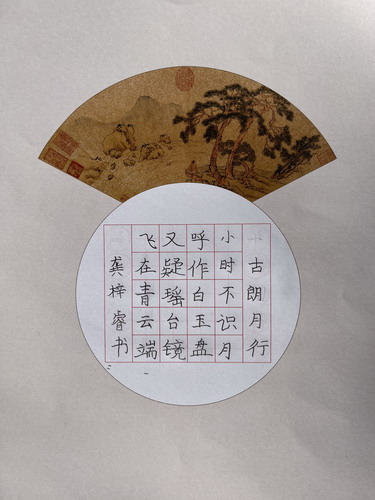 古朗月行
小时不识月
呼作白玉盘
又疑瑶台镜
飞在青云端
龚梓睿书